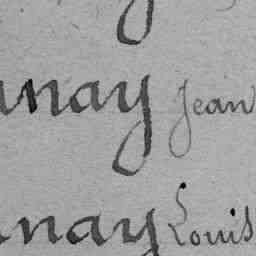 nay Jean
nay Louis